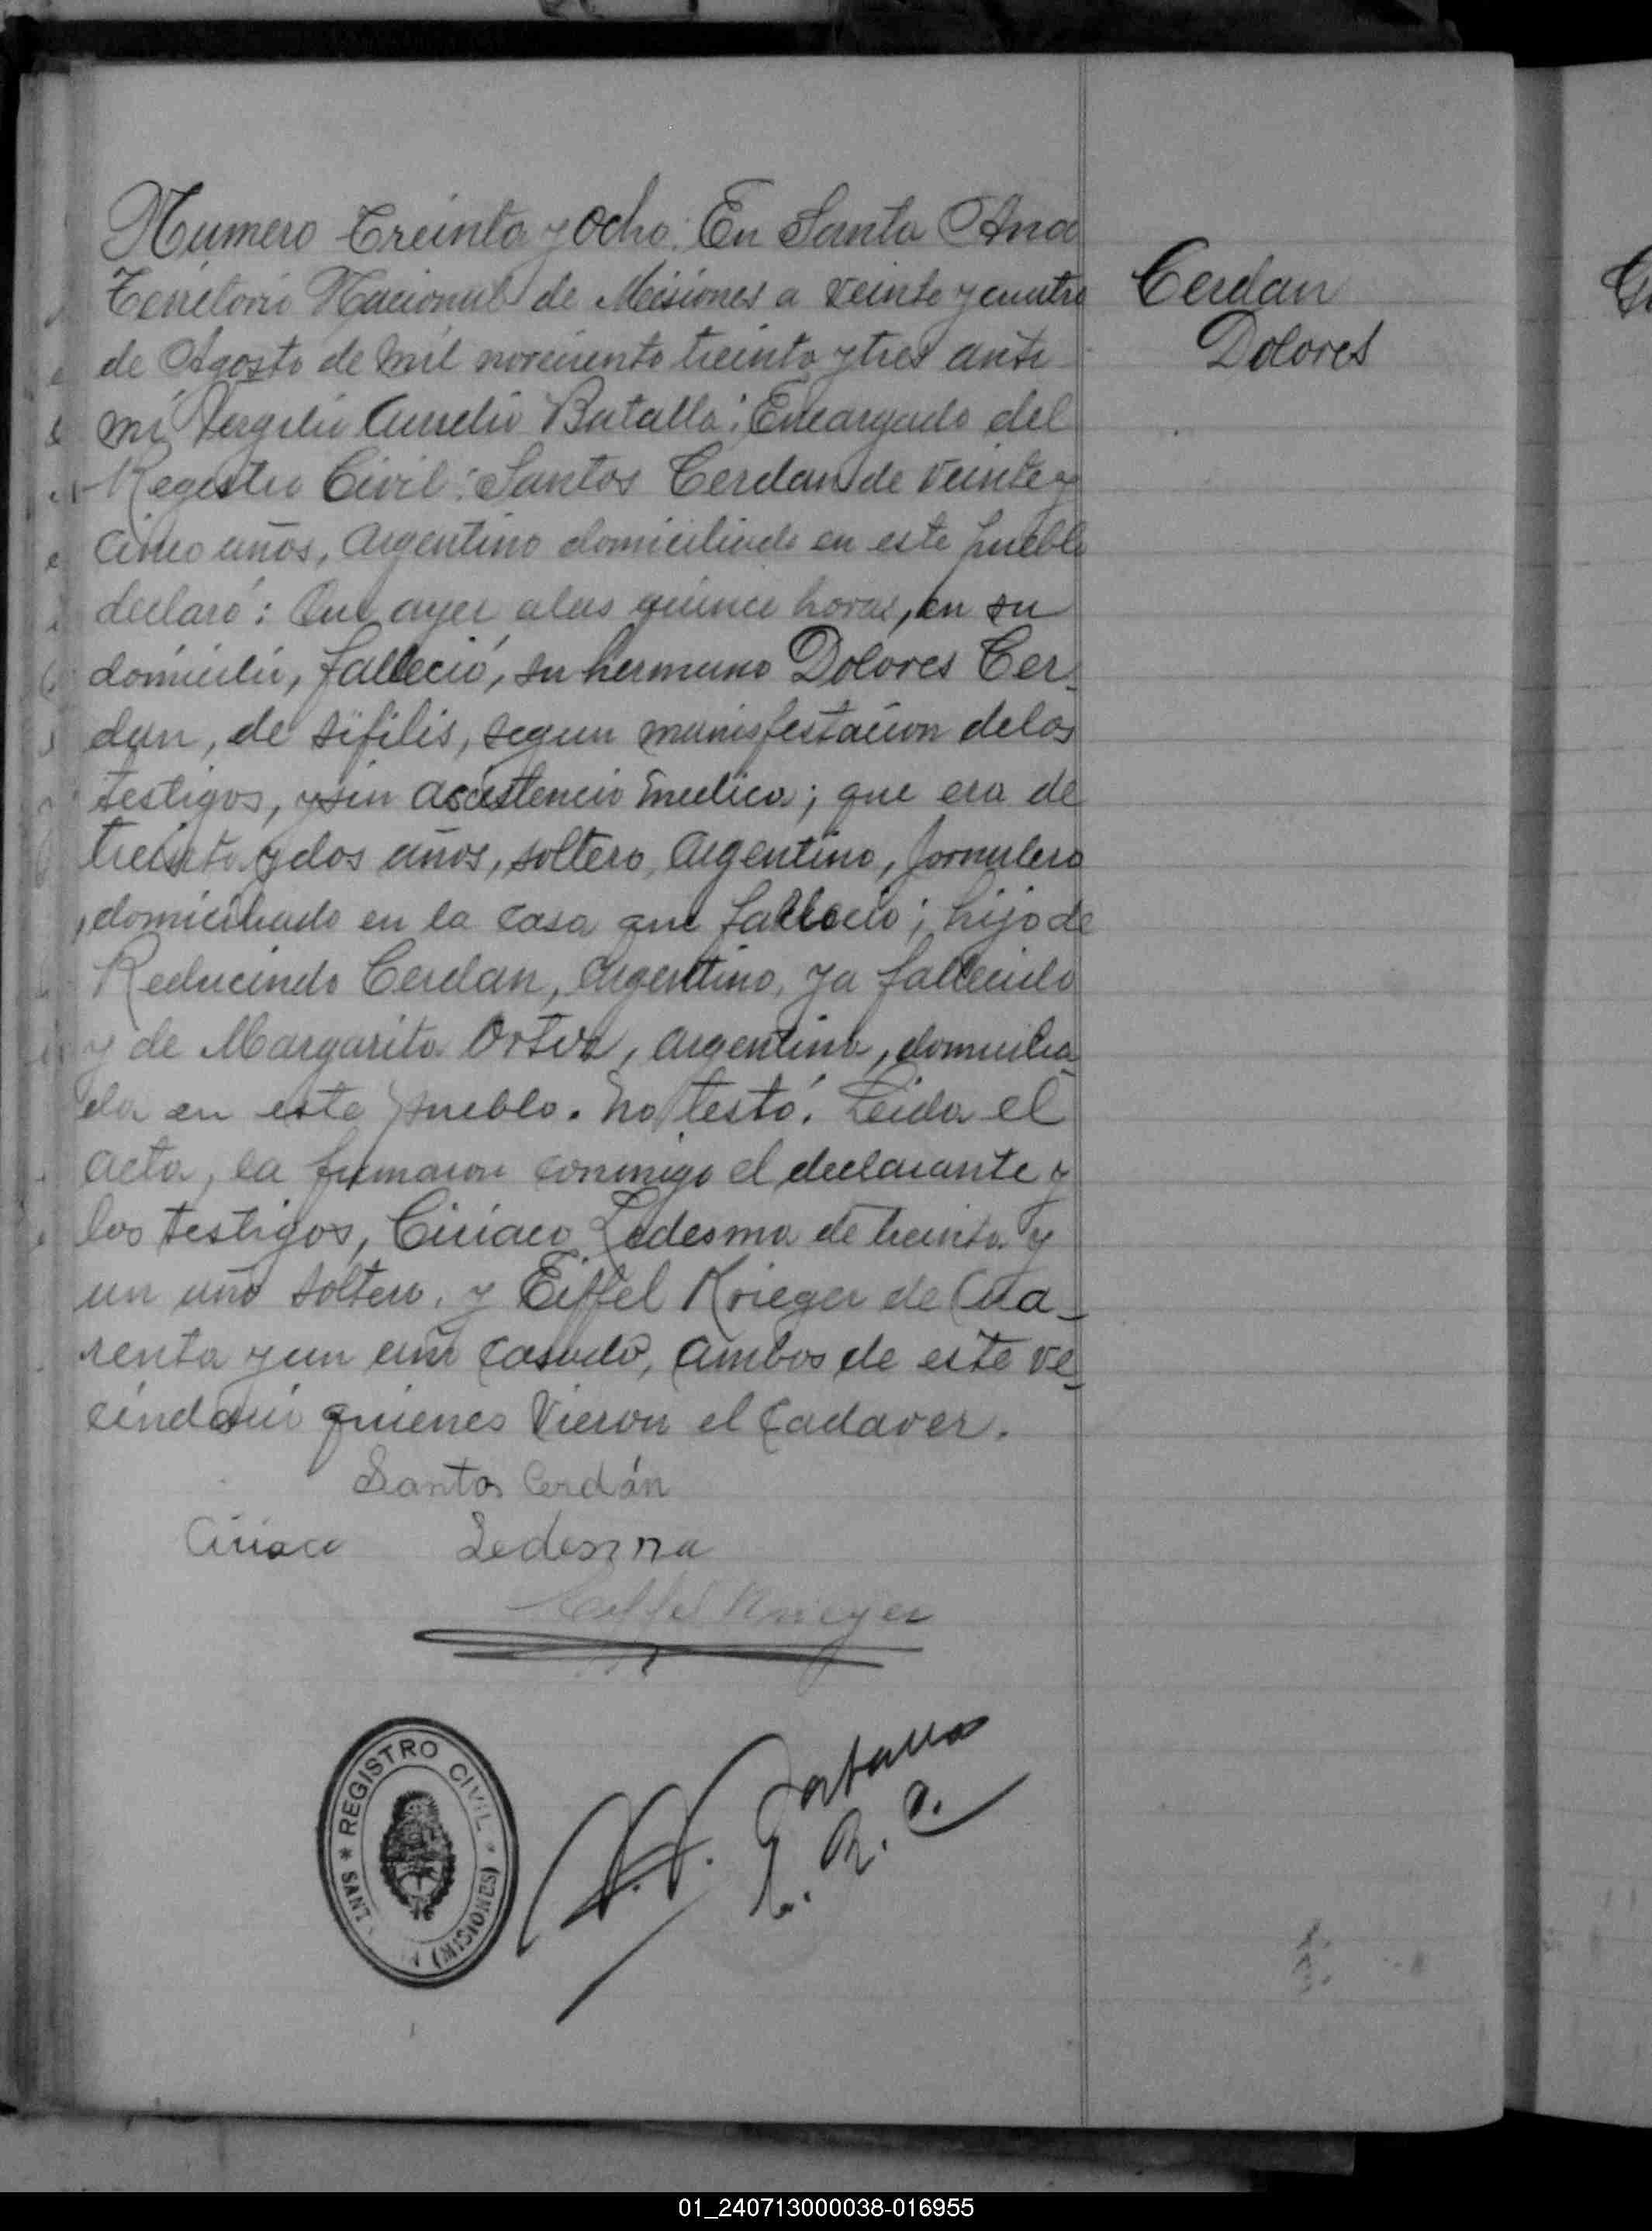 Numero treinta y ocho: En Santa Ana
Cerdan
Dolores
Territorio Nacional de Misiones a veinte y cuatro
de Agosto de mil noveciento treinta y tres ante
mi Vergilio Aurelio Batalla: Encargado del
Registro Civil: Santos Cerdan de veinte y
cinco años, Argentino domiciliado en este pueblo
declaró: Que ayer a las quince horas, en su
domicilio, falleció, su hermano Dolores Cer-
dan, de sifilis, segun manisfestacion de los
testigos, y sin asistencia medica; que era de
treinta y dos años, soltero, Argentino, jornalero
, domiciliado en la casa que fallecio; hijo de
Reducindo Cerdan, Argentino, ya fallecido
y de Margarita, argentina, domicilia-
da en este pueblo. No testó. Leida el
acta, la firmaron conmigo el declarante y
los testigos, Ciriaco Ledesma de treinta y
un año soltero, y Eiffel Krieger de Cua-
renta y un año casado, ambos de este ve-
cindario quienes vieron el cadaver.
Santos Cerdán
Ciriaco Ledesma
Eiffel Krieger
Batalla
E. R. C.
* REGISTRO CIVIL *
SANT (MISIONES)
01_240713000038-016955